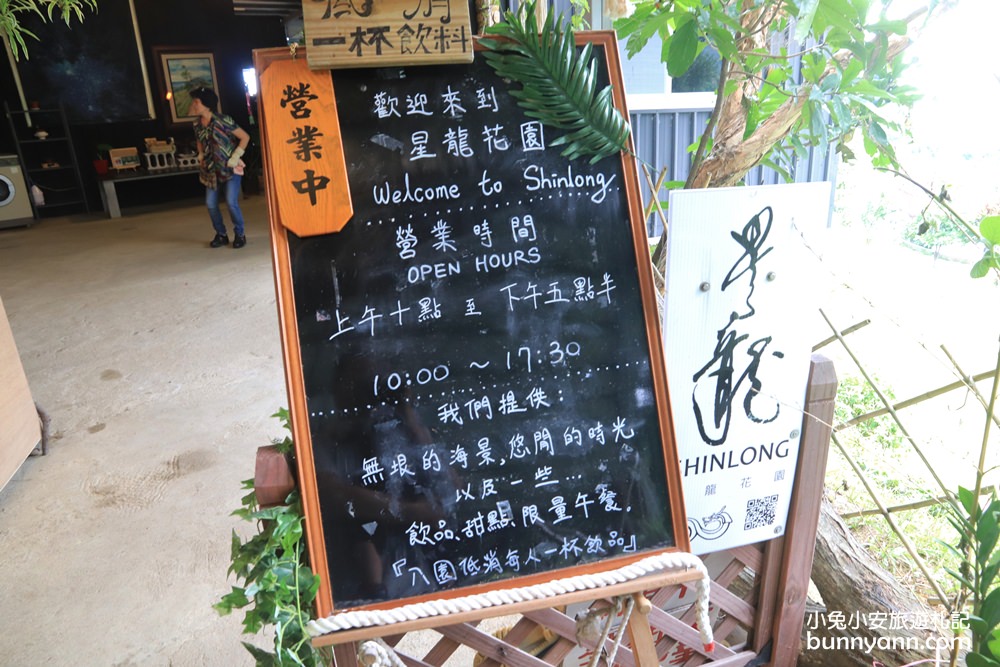 低消
一杯飲料
營業中
歡迎來到
星龍花園
Welcome to Shinlong
營業時間
OPEN HOURS
上午十點 至 下午五點半
10:00 ~ 17:30
我們提供:
無垠的海景,悠閒的時光
以及一些...
飲品、甜點、限量午餐。
『入園低消每人一杯飲品』
星龍
SHINLONG
龍花園
小兔小安旅遊札記
bunnyann.com